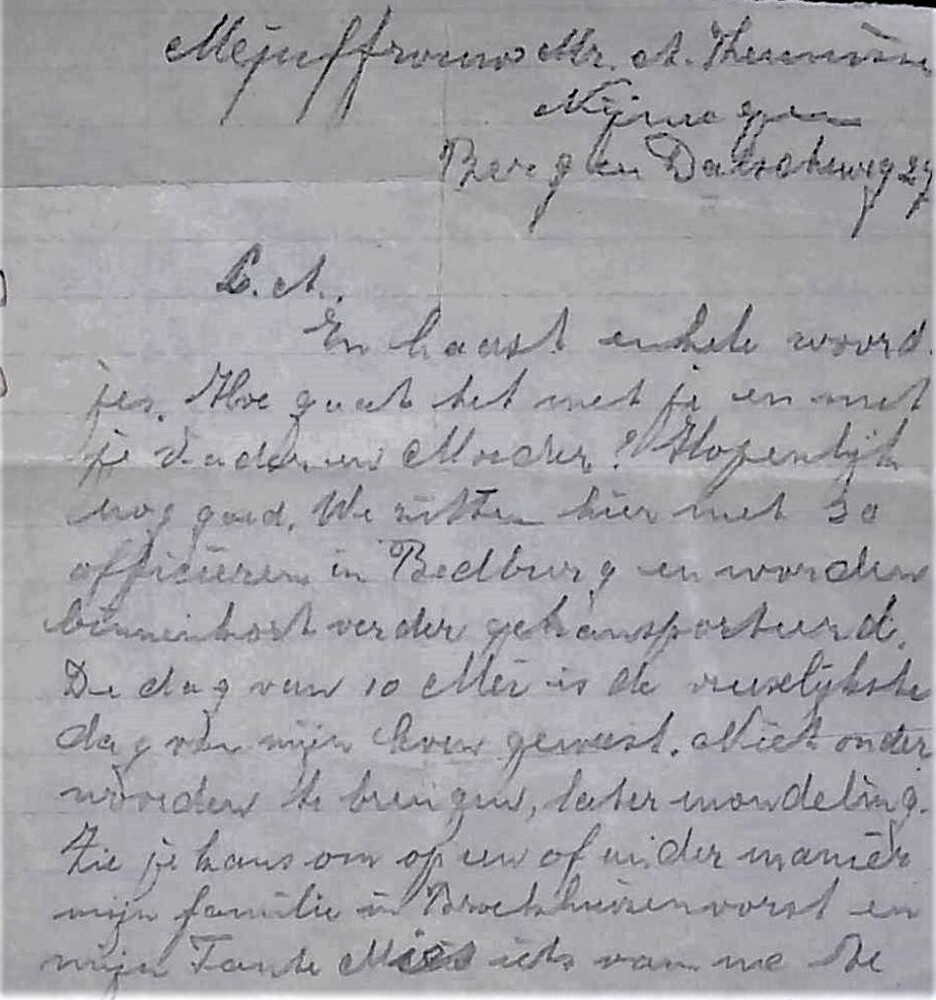 Mejuffrouw Mr. A. Theunisse
Nijmegen
Berg en Dalscheweg 27
L. A.,
In haast enkele woord-
jes. Hoe gaat het met je en met
je Vader en Moeder? Hopenlijk
nog goed. We zitten hier met 30
officieren in Bedburg en worden
binnenkort verder getransporteerd.
De dag van 10 Mei is de vreselijkste
dag van mijn leven geweest. Niet onder
woorden te brengen, later mondeling.
Zie je kans om op een of ander manier
mijn familie in Broekhuizenvorst en
mijn Tante Mies iets van me te